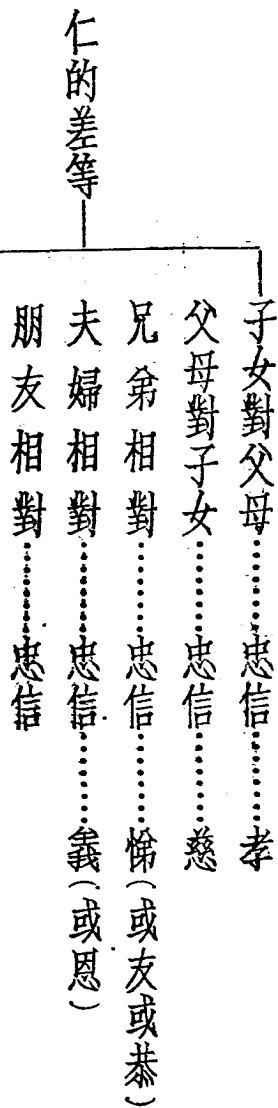 子女對父母………忠信………孝
父母對子女………忠信………慈
兄弟相對………忠信………悌(或友或恭)
仁的差等
夫婦相對………忠信………義(或恩)
朋友相對………忠信